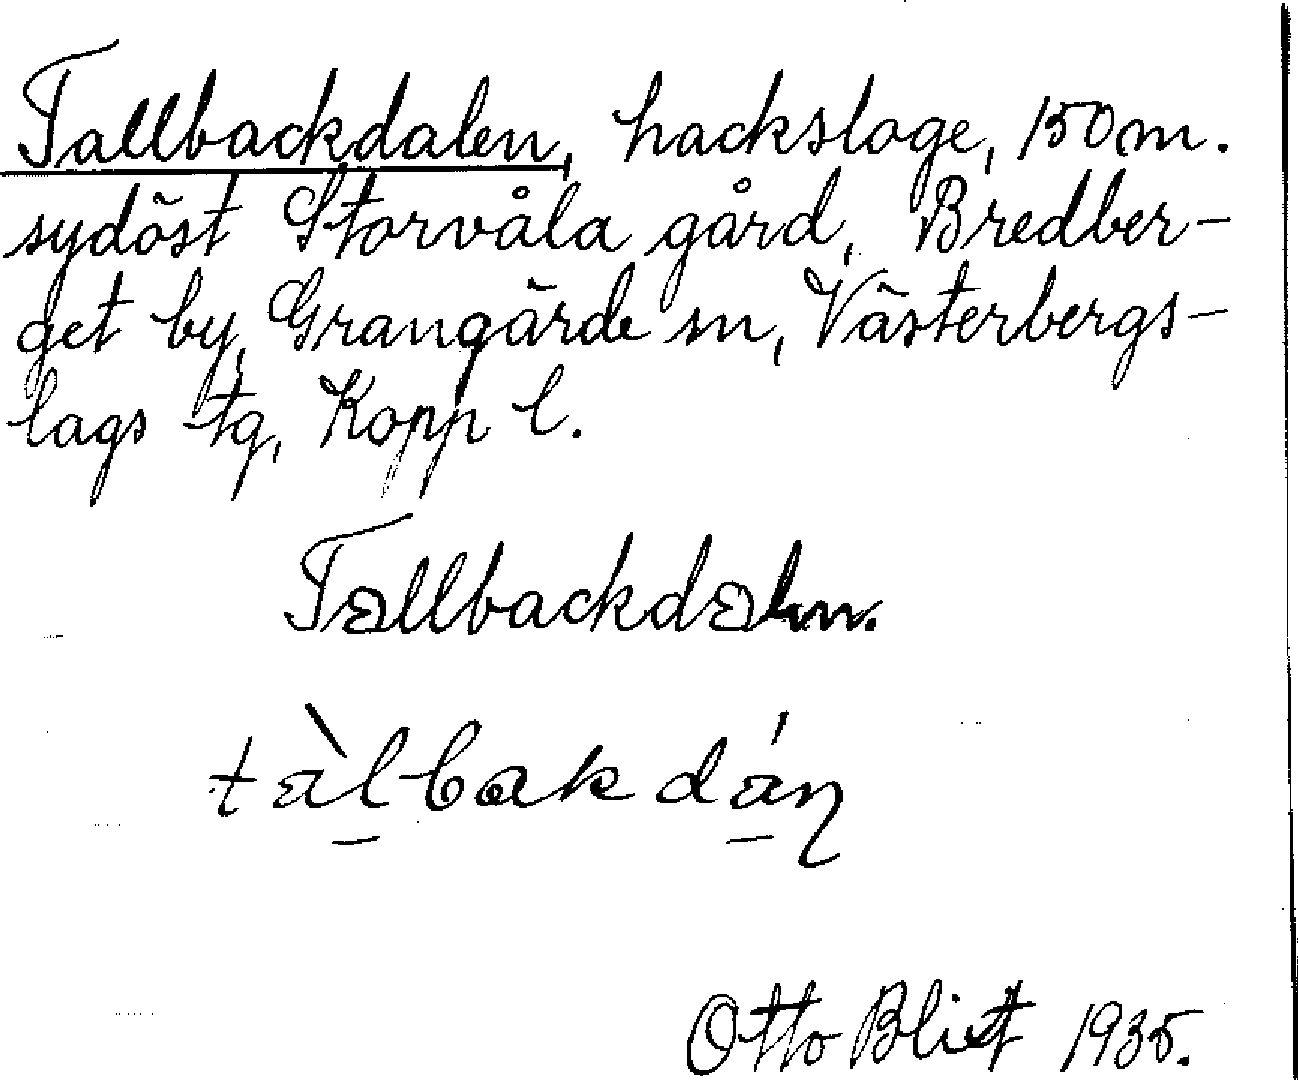 Tallbackdalen, hackslage, 150 m.
sydöst Storvåla gård, Bredber-
get by, Grangärde sn, Västerbergs-
lags tg, Kopp l.
Tallbackdaln.
tàlbakdáꞃ
Otto Blixt 1935.